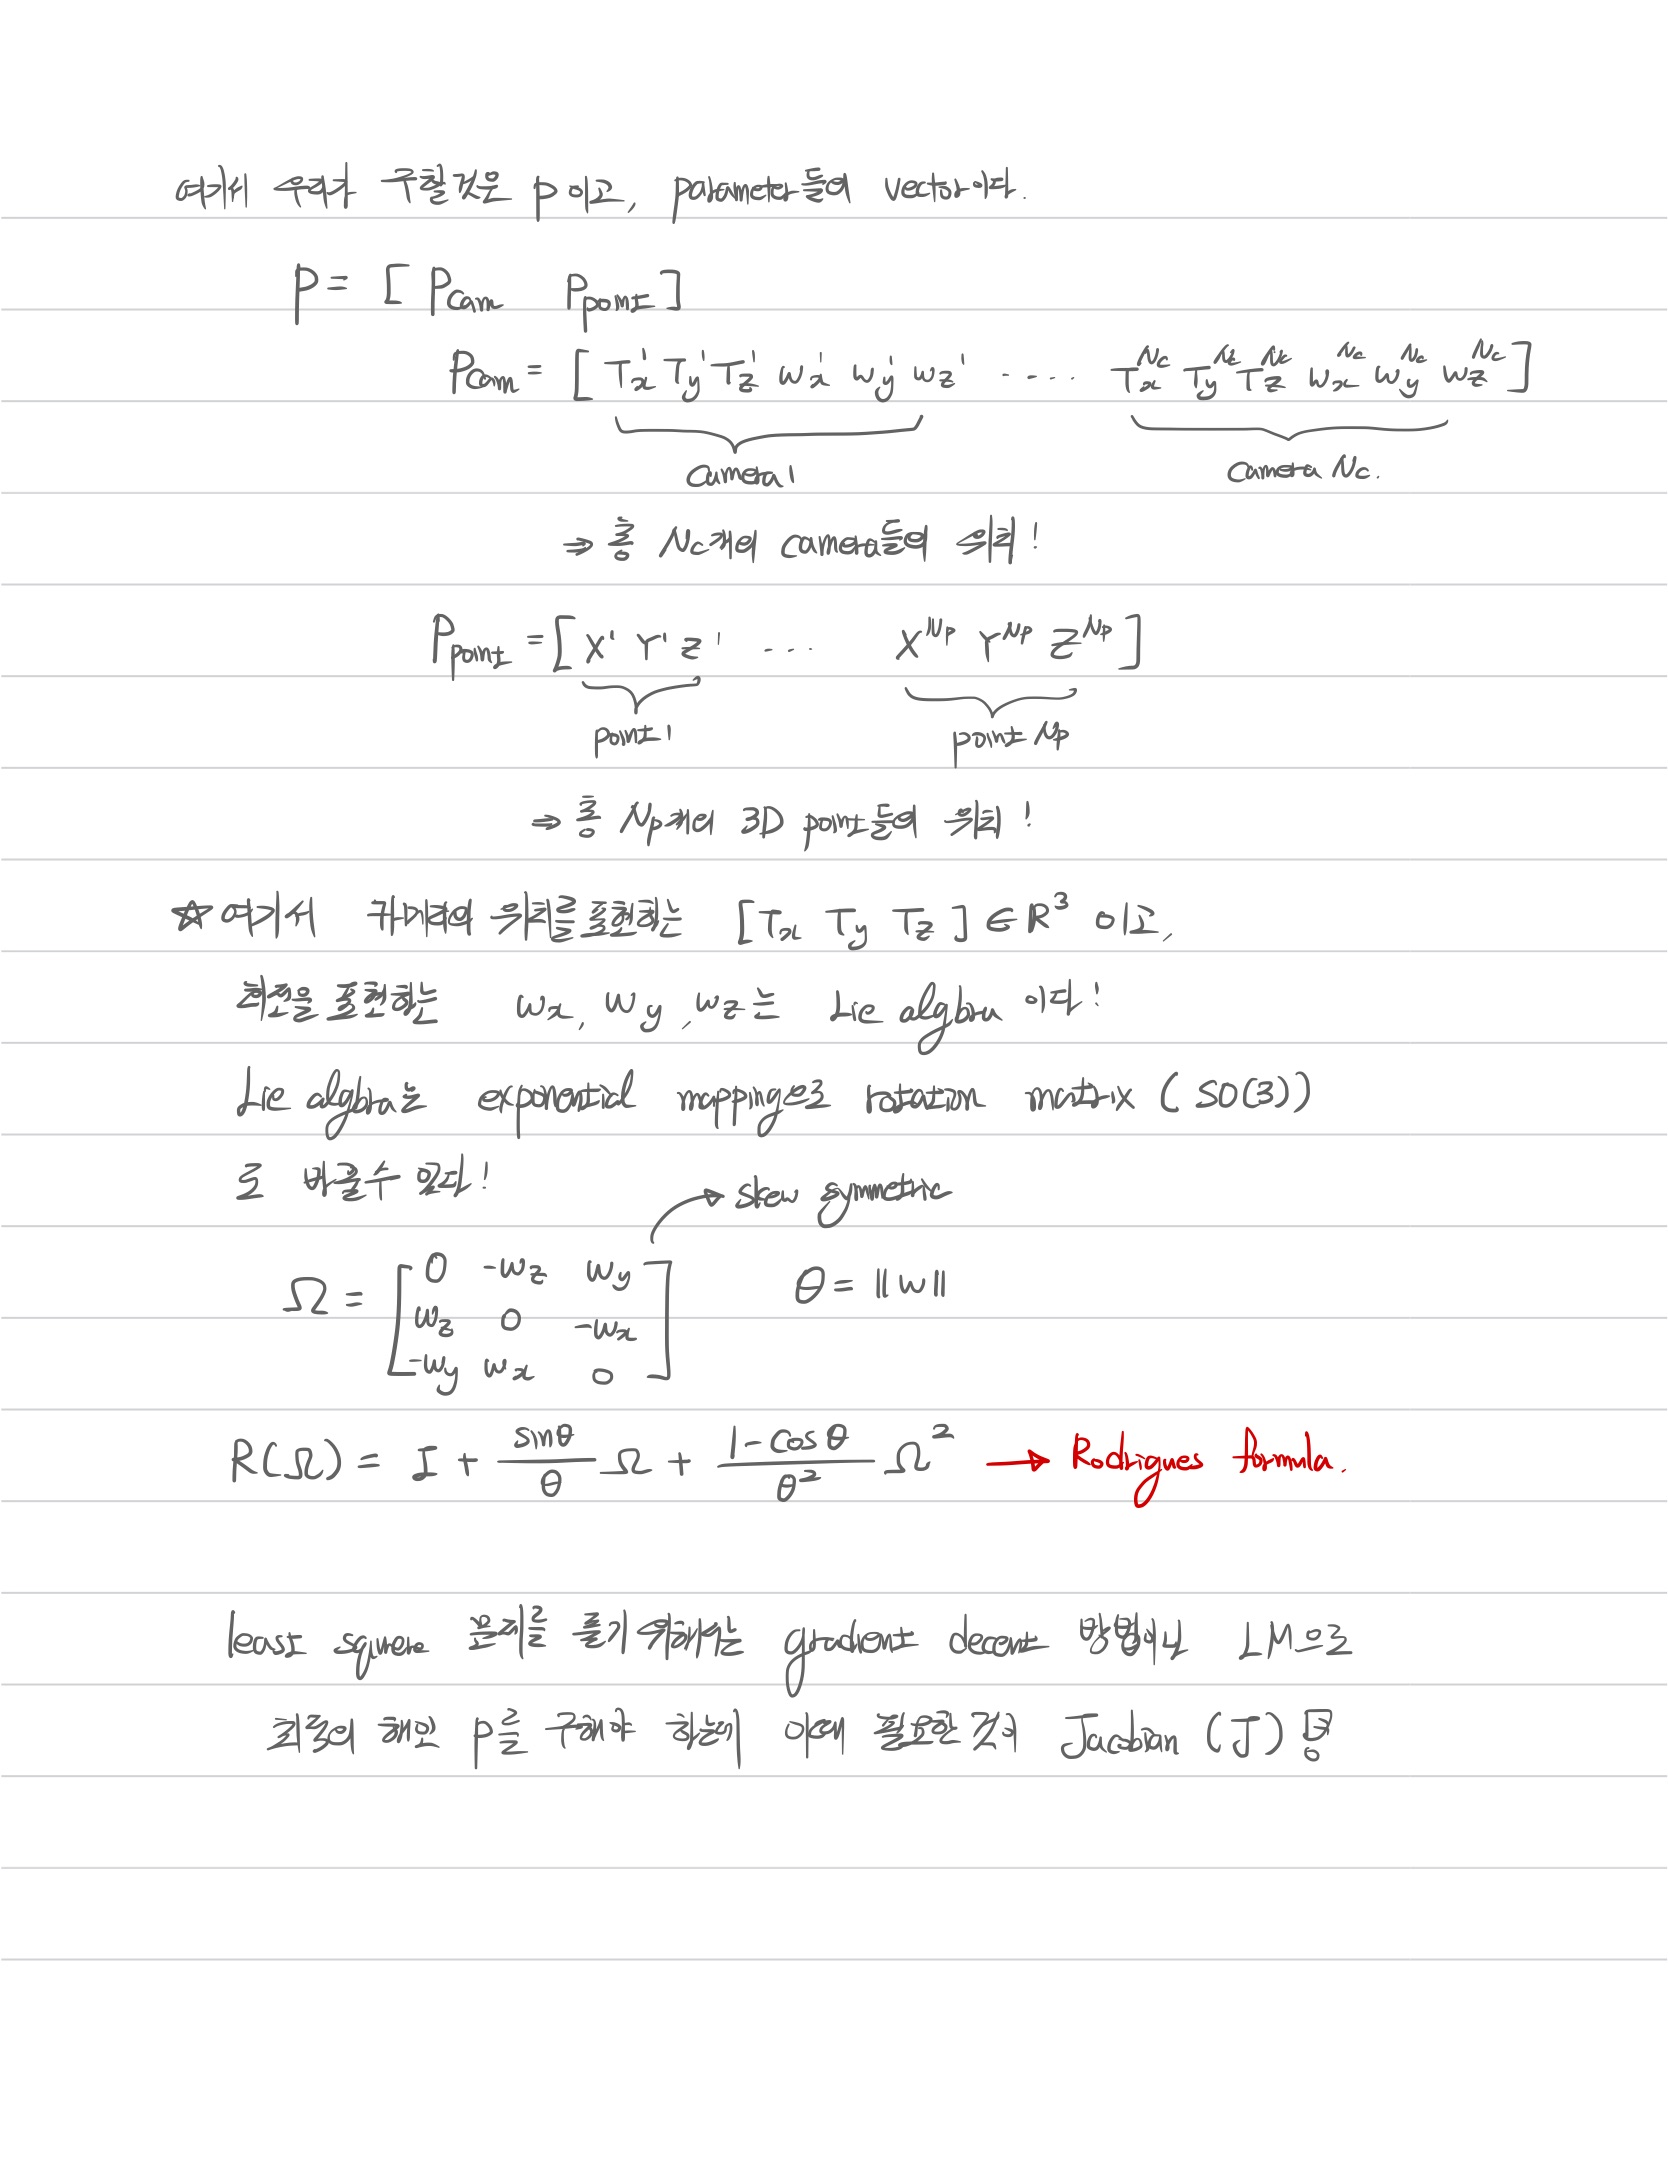 여기서 우리가 구할것은 p 이고, parameter들의 vector이다.
P = [ P_cam P_point ]
P_cam = [ T_x^1 T_y^1 T_z^1 w_x^1 w_y^1 w_z^1 ..... T_x^Nc T_y^Nc T_z^Nc w_x^Nc w_y^Nc w_z^Nc ]
camera 1 camera Nc.
⇒ 총 Nc개의 camera들의 위치!
P_point = [ X^1 Y^1 Z^1 ... X^Np Y^Np Z^Np ]
point 1 point Np
⇒ 총 Np개의 3D point들의 위치!
☆ 여기서 카메라의 위치를 표현하는 [ T_x T_y T_z ] ∈ R^3 이고,
회전을 표현하는 w_x, w_y, w_z는 Lie algbra 이다!
Lie algbra는 exponential mapping으로 rotation matrix ( SO(3))
로 바꿀수 있다!
→ skew symmetric
Ω = [ 0 -w_z w_y
w_z 0 -w_x
-w_y w_x 0 ]
θ = ||w||
R(Ω) = I + sinθ/θ Ω + 1-cosθ/θ^2 Ω^2 → Rodrigues formula.
least squere 문제를 풀기 위해서는 gradient decent 방법이나 LM으로
최적의 해인 p를 구해야 하는데 이때 필요한 것이 Jacobian (J)